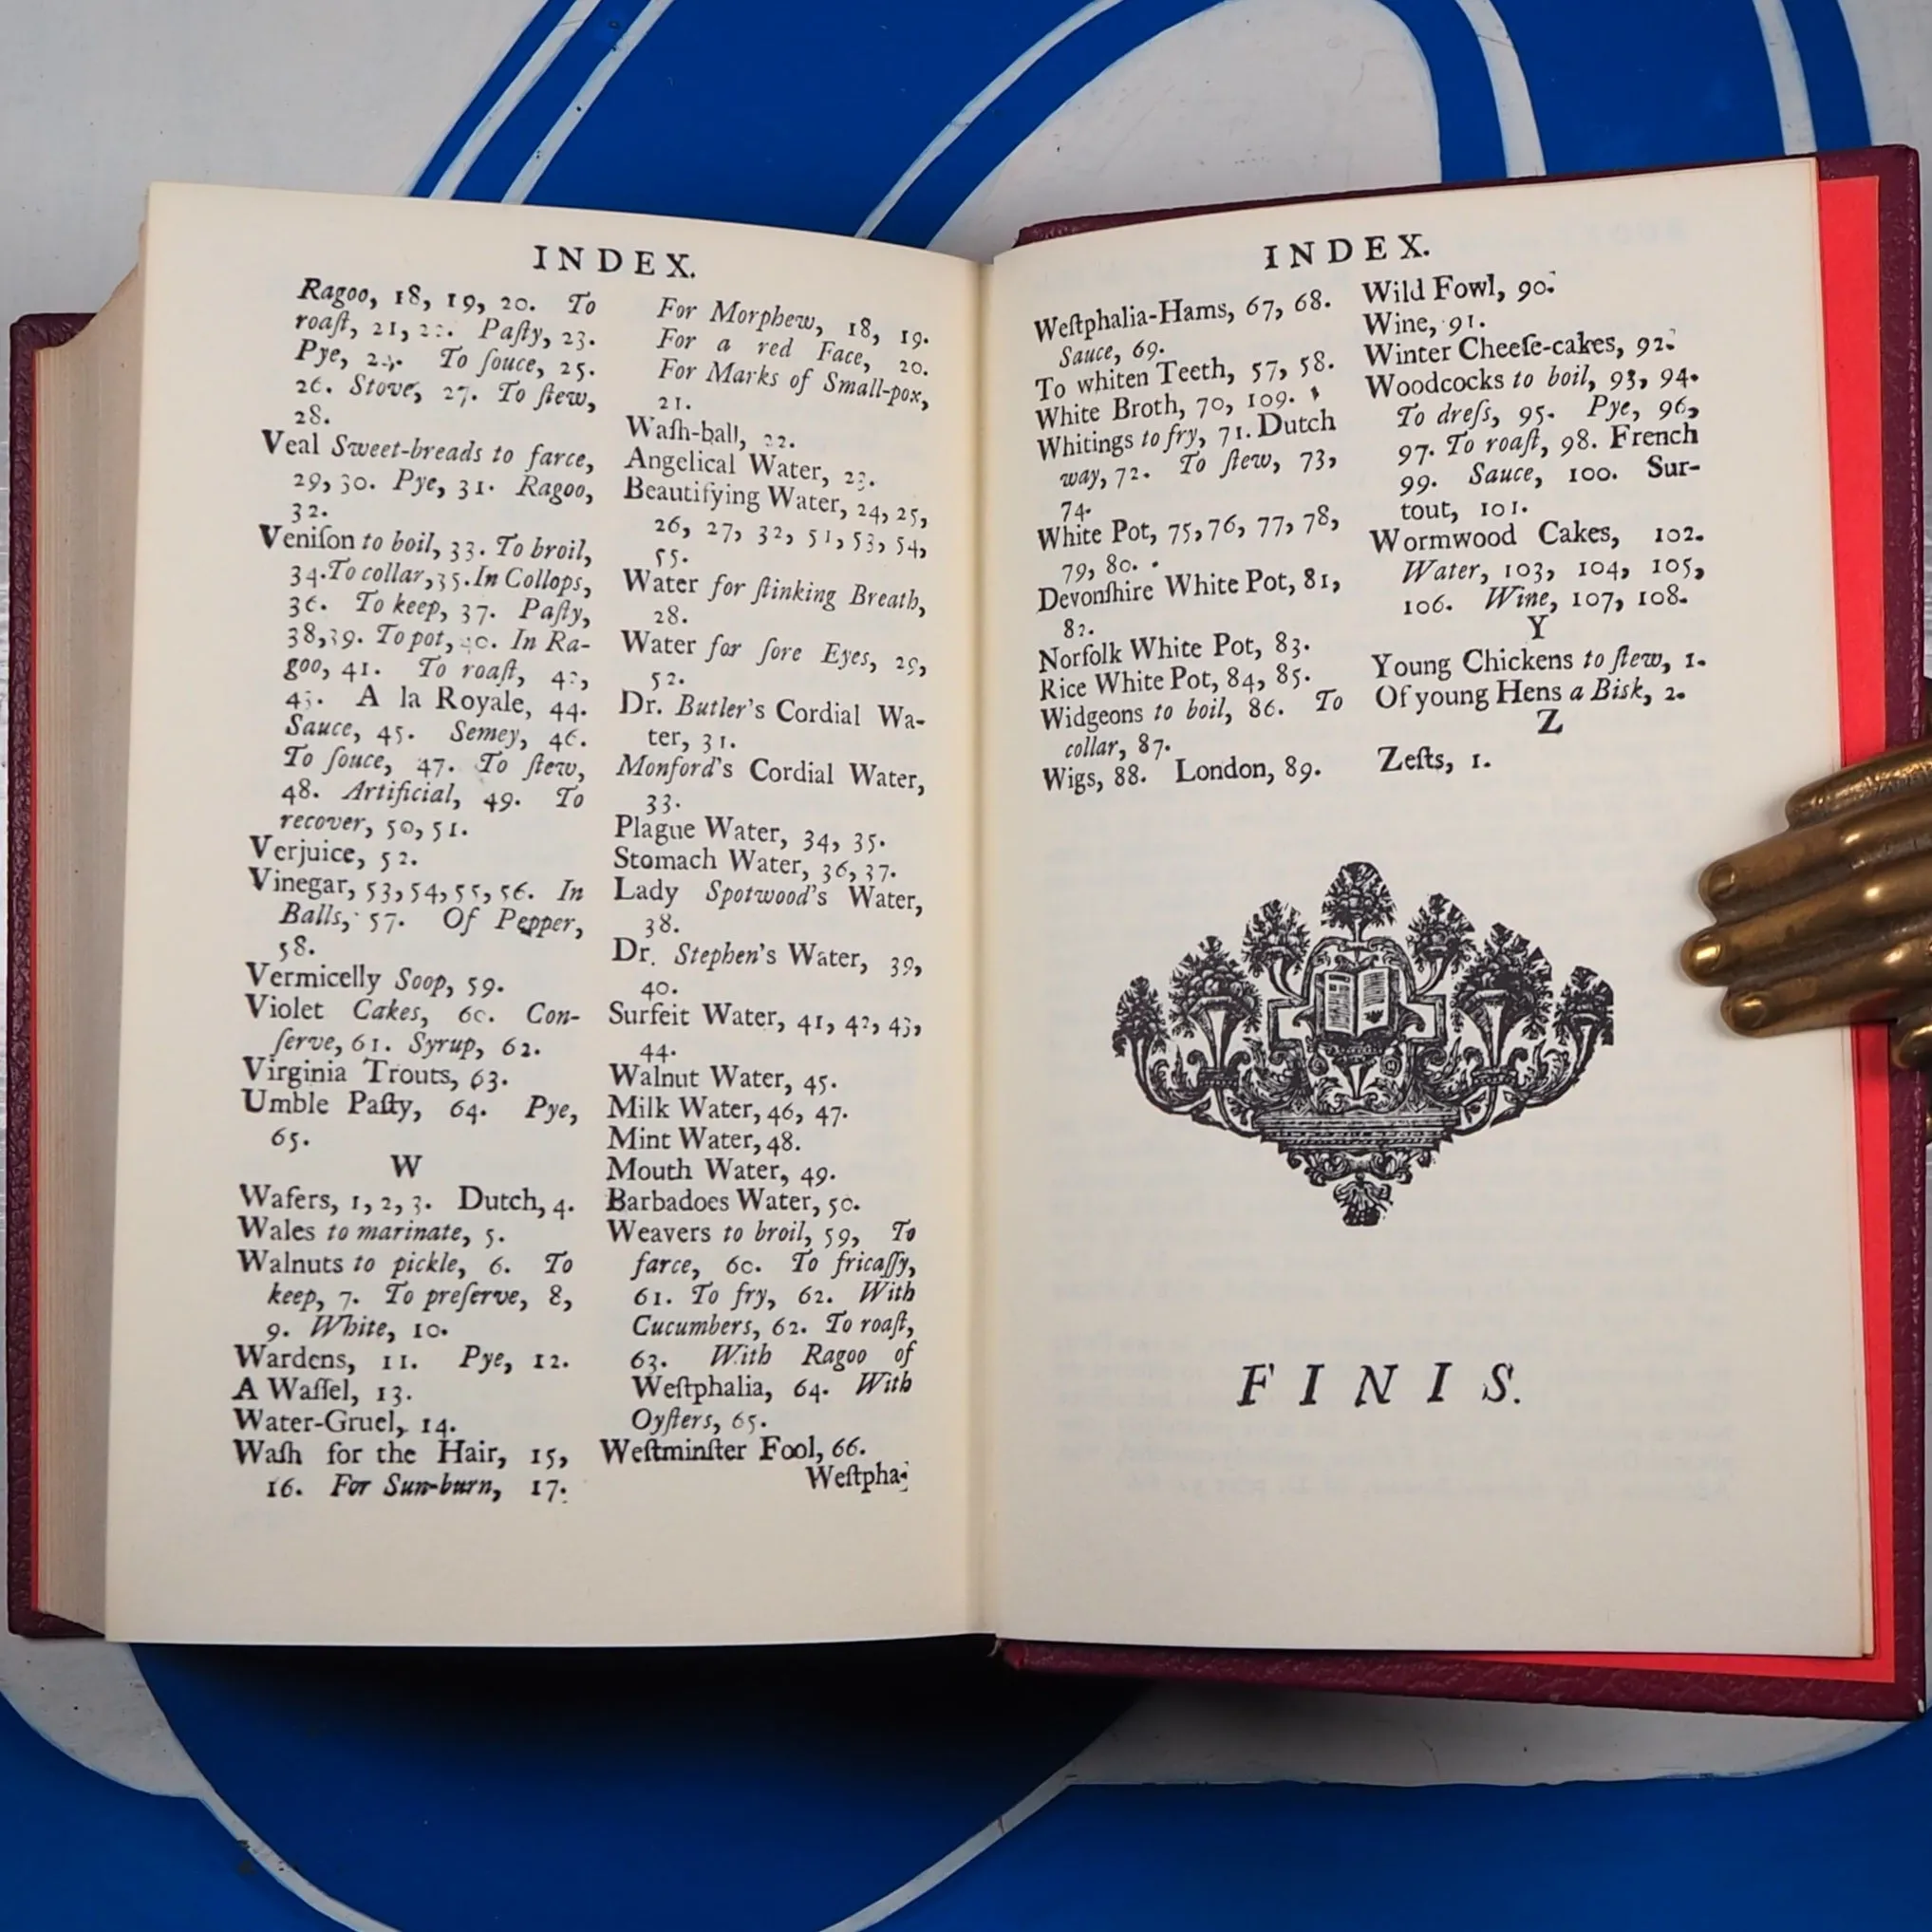 INDEX.
Ragoo, 18, 19, 20. To
roaſt, 21, 22. Paſty, 23.
Pye, 24. To ſouce, 25.
26. Stove, 27. To ſtew,
28.
Veal Sweet-breads to farce,
29, 30. Pye, 31. Ragoo,
32.
Veniſon to boil, 33. To broil,
34. To collar, 35. In Collops,
36. To keep, 37. Paſty,
38, 39. To pot, 40. In Ra-
goo, 41. To roaſt, 42,
43. A la Royale, 44.
Sauce, 45. Semey, 46.
To ſouce, 47. To ſtew,
48. Artificial, 49. To
recover, 50, 51.
Verjuice, 52.
Vinegar, 53, 54, 55, 56. In
Balls, 57. Of Pepper,
58.
Vermicelly Soop, 59.
Violet Cakes, 60. Con-
ſerve, 61. Syrup, 62.
Virginia Trouts, 63.
Umble Paſty, 64. Pye,
65.
W
Wafers, 1, 2, 3. Dutch, 4.
Wales to marinate, 5.
Walnuts to pickle, 6. To
keep, 7. To preſerve, 8,
9. White, 10.
Wardens, 11. Pye, 12.
A Waſſel, 13.
Water-Gruel, 14.
Waſh for the Hair, 15,
16. For Sun-burn, 17.
For Morphew, 18, 19.
For a red Face, 20.
For Marks of Small-pox,
21.
Waſh-ball, 22.
Angelical Water, 23.
Beautifying Water, 24, 25,
26, 27, 32, 51, 53, 54,
55.
Water for ſtinking Breath,
28.
Water for ſore Eyes, 29,
52.
Dr. Butler's Cordial Wa-
ter, 31.
Monford's Cordial Water,
33.
Plague Water, 34, 35.
Stomach Water, 36, 37.
Lady Spotwood's Water,
38.
Dr. Stephen's Water, 39,
40.
Surfeit Water, 41, 42, 43,
44.
Walnut Water, 45.
Milk Water, 46, 47.
Mint Water, 48.
Mouth Water, 49.
Barbadoes Water, 50.
Weavers to broil, 59, To
farce, 60. To fricaſſy,
61. To fry, 62. With
Cucumbers, 62. To roaſt,
63. With Ragoo of
Weſtphalia, 64. With
Oyſters, 65.
Weſtminſter Fool, 66.
Weſtpha-
INDEX.
Weſtphalia-Hams, 67, 68.
Sauce, 69.
To whiten Teeth, 57, 58.
White Broth, 70, 109.
Whitings to fry, 71. Dutch
way, 72. To ſtew, 73,
74.
White Pot, 75, 76, 77, 78,
79, 80.
Devonſhire White Pot, 81,
82.
Norfolk White Pot, 83.
Rice White Pot, 84, 85.
Widgeons to boil, 86. To
collar, 87.
Wigs, 88. London, 89.
Wild Fowl, 90.
Wine, 91.
Winter Cheeſe-cakes, 92.
Woodcocks to boil, 93, 94.
To dreſs, 95. Pye, 96,
97. To roaſt, 98. French
99. Sauce, 100. Sur-
tout, 101.
Wormwood Cakes, 102.
Water, 103, 104, 105,
106. Wine, 107, 108.
Y
Young Chickens to ſtew, 1.
Of young Hens a Bisk, 2.
Z
Zeſts, 1.
FINIS.